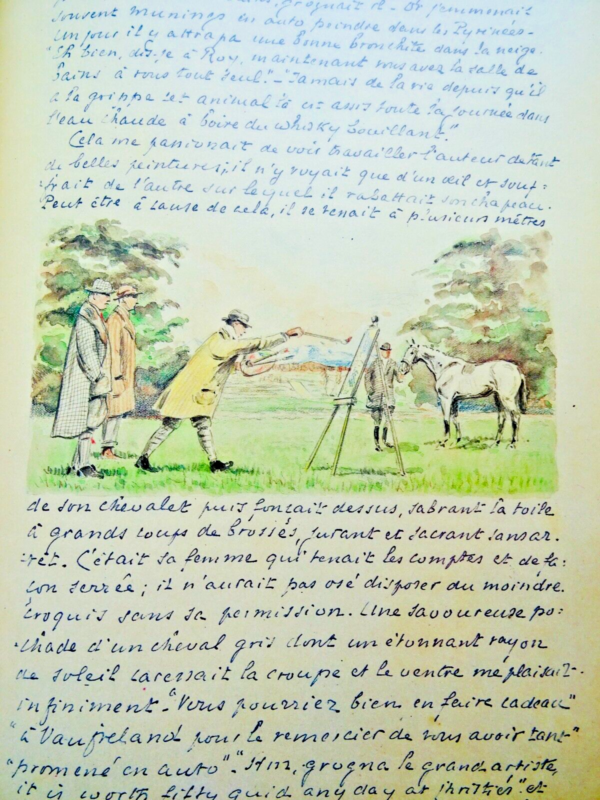 souvent Munings en auto peindre dans les Pyrénées-
un jour il y attrapa une bonne bronchite dans la neige-
"Eh bien, dis-je à Roy, maintenant vous avez la salle de
bains à vous tout seul"-"Jamais de la vie depuis qu'il
a la grippe cet animal là est assis toute la journée dans
l'eau chaude à boire du whisky bouillant."
Cela me passionait de voir travailler l'auteur de tant
de belles peintures; il n'y voyait que d'un œil et souf-
frait de l'autre sur lequel il rabattait son chapeau.
Peut être à cause de cela, il se tenait à plusieurs mètres
de son chevalet puis fonçait dessus, sabrant la toile
à grands coups de brosses, jurant et sacrant sans ar-
rêt. C'était sa femme qui tenait les comptes et de fa-
çon serrée; il n'aurait pas osé disposer du moindre
croquis sans sa permission. Une savoureuse po-
chade d'un cheval gris dont un étonnant rayon
de soleil caressait la croupe et le ventre me plaisait
infiniment-"Vous pourriez bien en faire cadeau"
"à Vaufreland pour le remercier de vous avoir tant"
"promené en auto"-"Hm, grogna le grand artiste,
it is worth fifty quid any day at